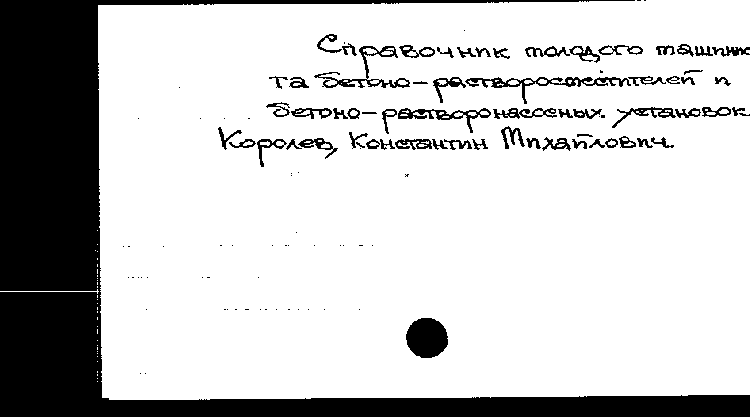 Справочник молодого машинис
та бетоно-растворосмесителей и
бетоно-растворонасосных установок
Королев, Константин Михайлович.